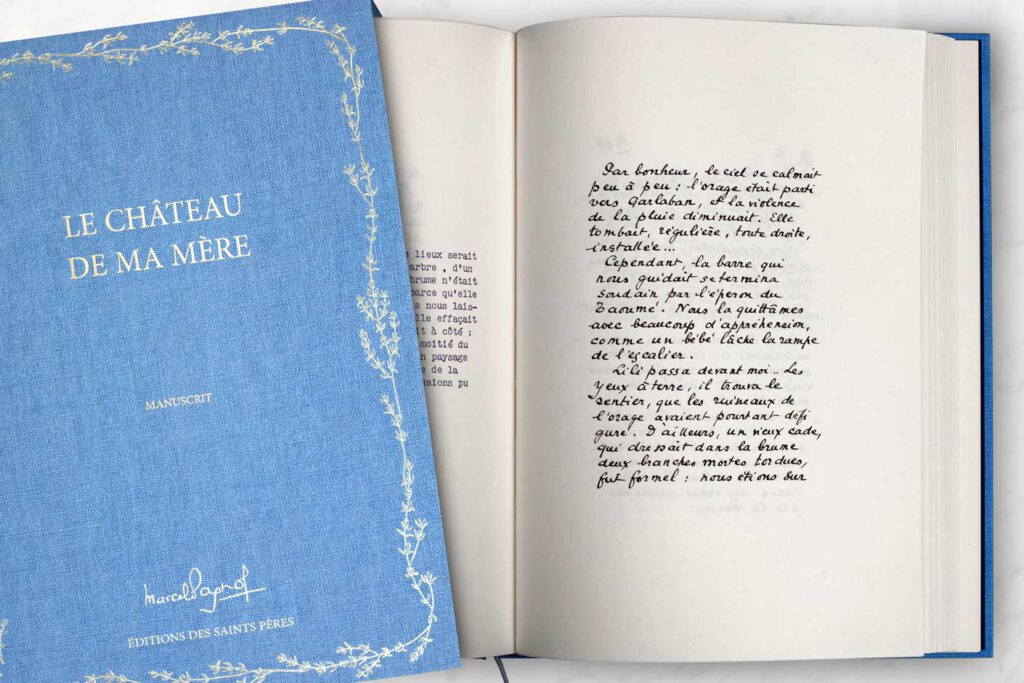 LE CHÂTEAU
DE MA MÈRE
MANUSCRIT
Marcel Pagnol
ÉDITIONS DES SAINTS PÈRES
lieux serait
arbre, d'un
brume n'était
parce qu'elle
nous lais-
lle effaçait
t à côté :
moitié du
n paysage
de la
sions pu
Par bonheur, le ciel se calmait
peu à peu : l'orage était parti
vers Garlaban, et la violence
de la pluie diminuait. Elle
tombait, régulière, toute droite,
installée...
Cependant, la barre qui
nous guidait se termina
soudain par l'éperon du
Taoumé. Nous la quittâmes
avec beaucoup d'appréhension,
comme un bébé lâche la rampe
de l'escalier.
Lili passa devant moi.. Les
yeux à terre, il trouva le
sentier, que les ruisseaux de
l'orage avaient pourtant défi
guré. D'ailleurs, un vieux cade,
qui dressait dans la brume
deux branches mortes tordues,
fut formel : nous étions sur